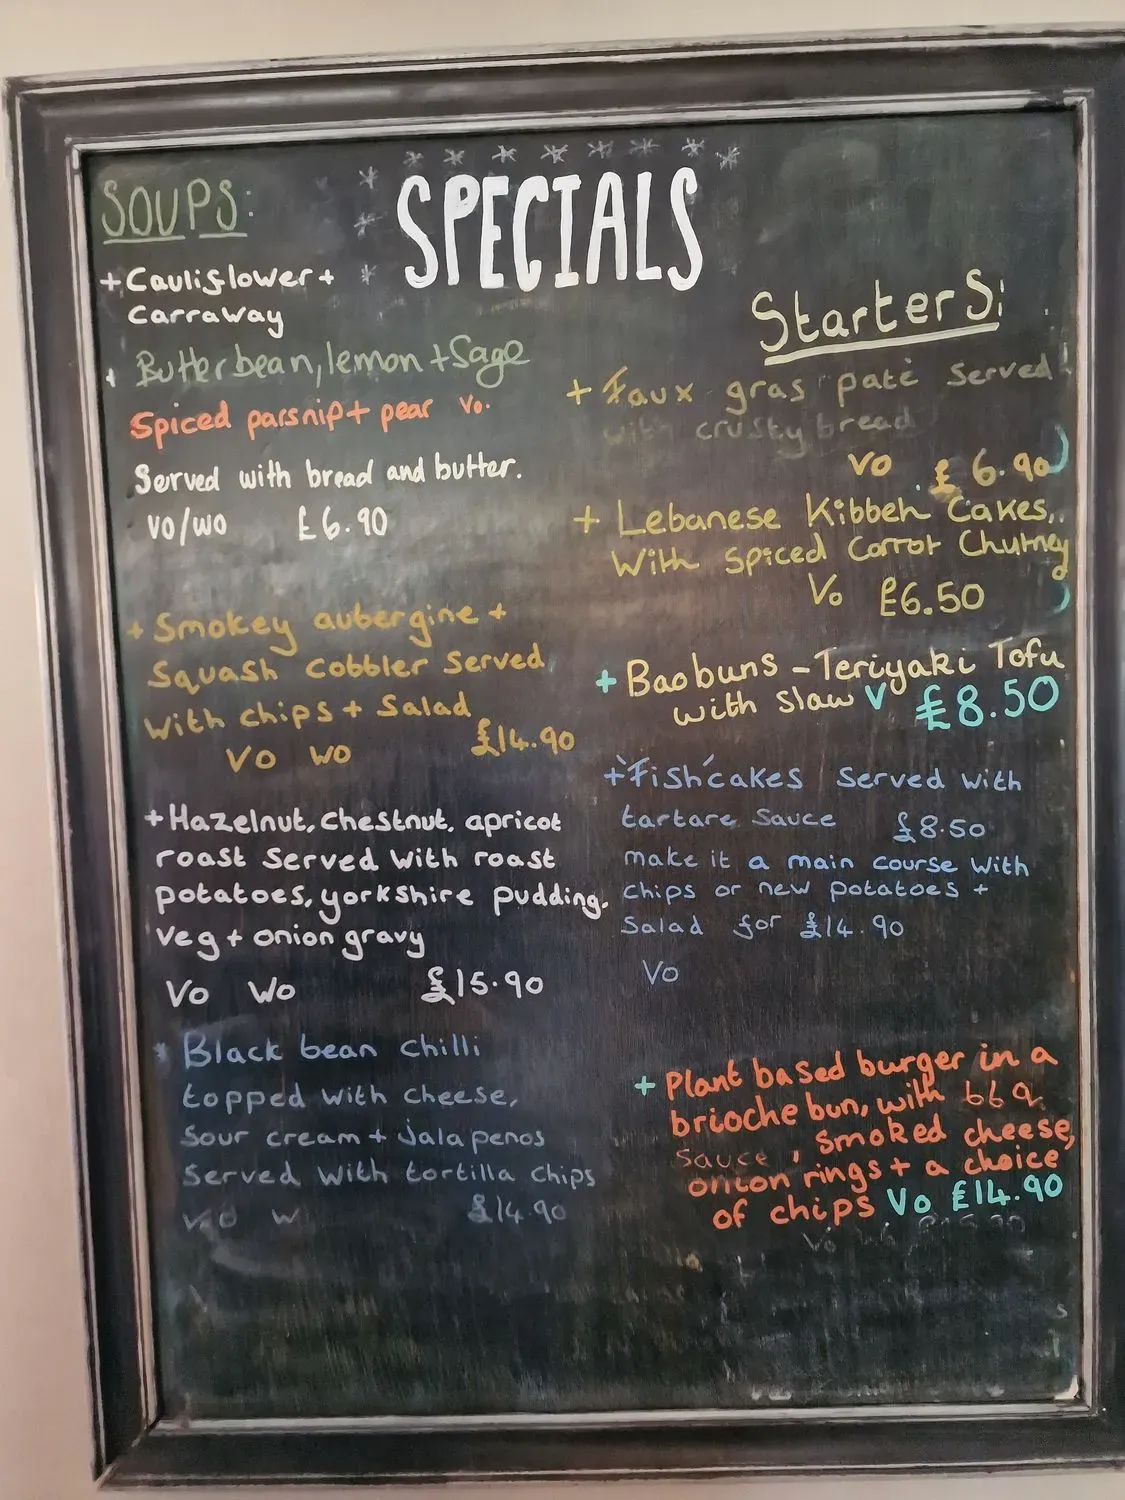 SPECIALS
SOUPS:
+ Cauliflower +
Carraway
+ Butterbean, lemon + Sage
Spiced parsnip + pear Vo.
Served with bread and butter.
VO/WO £6.90
+ Smokey aubergine +
Squash cobbler served
With chips + Salad
VO WO £14.90
+ Hazelnut, chestnut, apricot
roast served with roast
potatoes, yorkshire pudding,
veg + onion gravy
VO WO £15.90
Black bean chilli
topped with cheese,
Sour cream + jalapenos
Served with tortilla chips
£14.90
Starters:
+ Faux gras paté served
with crusty bread
VO £6.90
+ Lebanese Kibbeh Cakes,
With spiced carrot Chutney
Vo £6.50
+ Baobuns - Teriyaki Tofu
with slaw V £8.50
+ 'Fish' cakes served with
tartare sauce £8.50
make it a main course with
chips or new potatoes +
Salad for £14.90
Vo
+ Plant based burger in a
brioche bun, with bbq
sauce, smoked cheese,
onion rings + a choice
of chips Vo £14.90